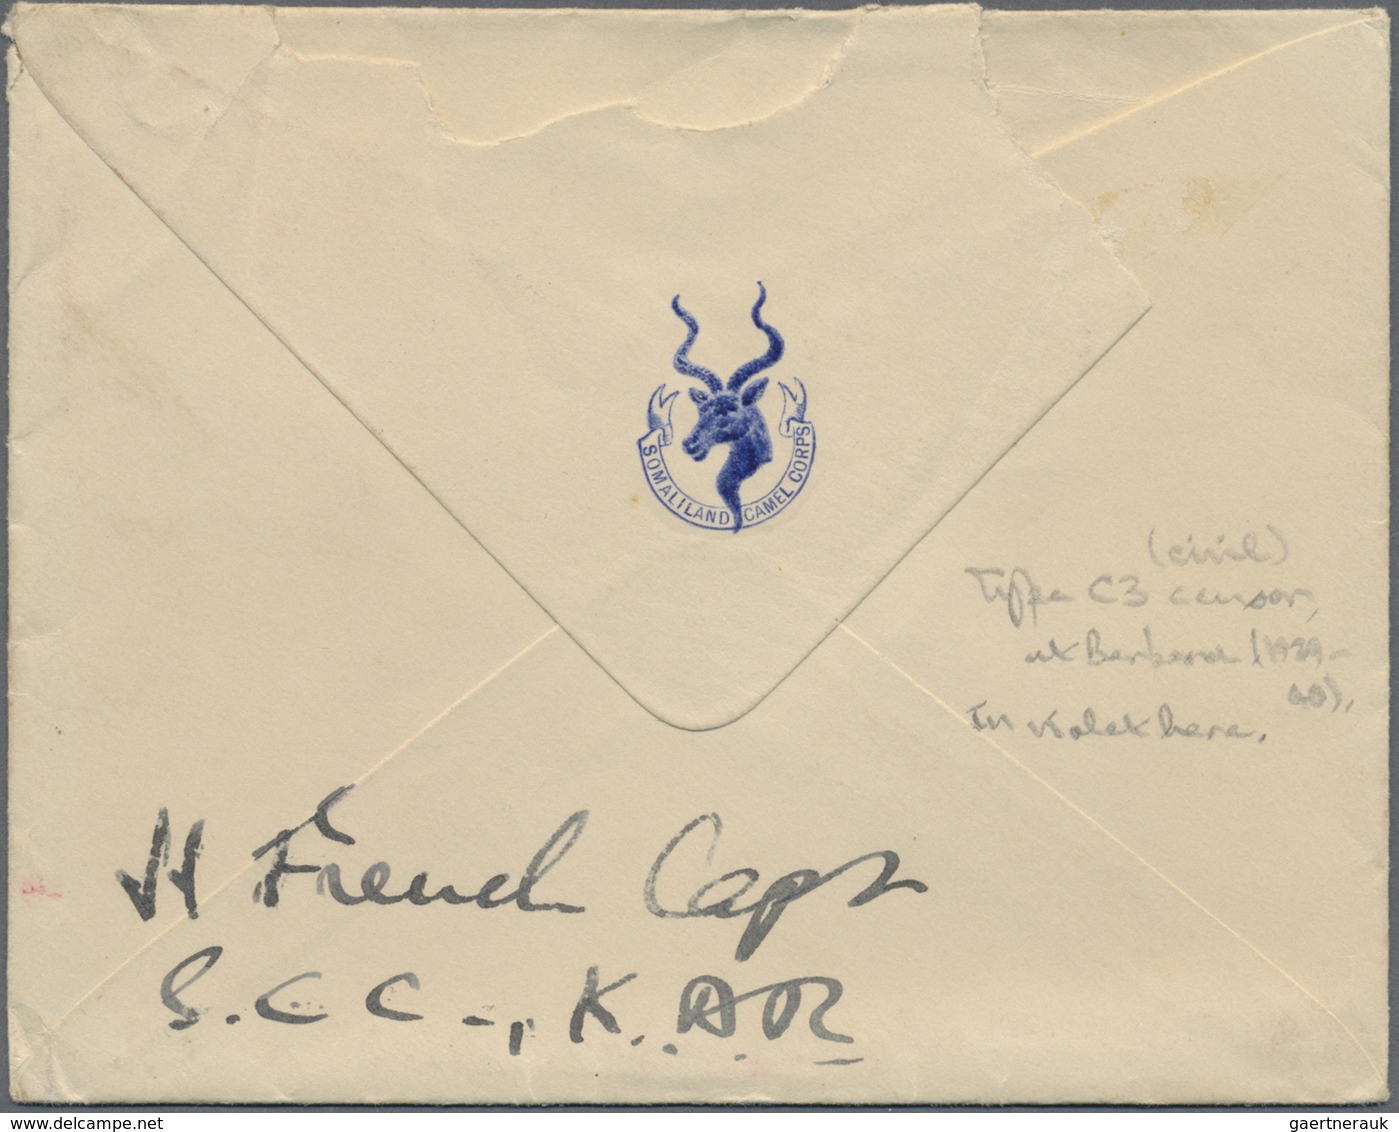 SOMALILAND CAMEL CORPS
(civil)
Type C3 censor,
at Berbera (1939-
40),
In violet here.
H French Capt
S.C.C., K.A.R
delcampe.net
gaertnerauk